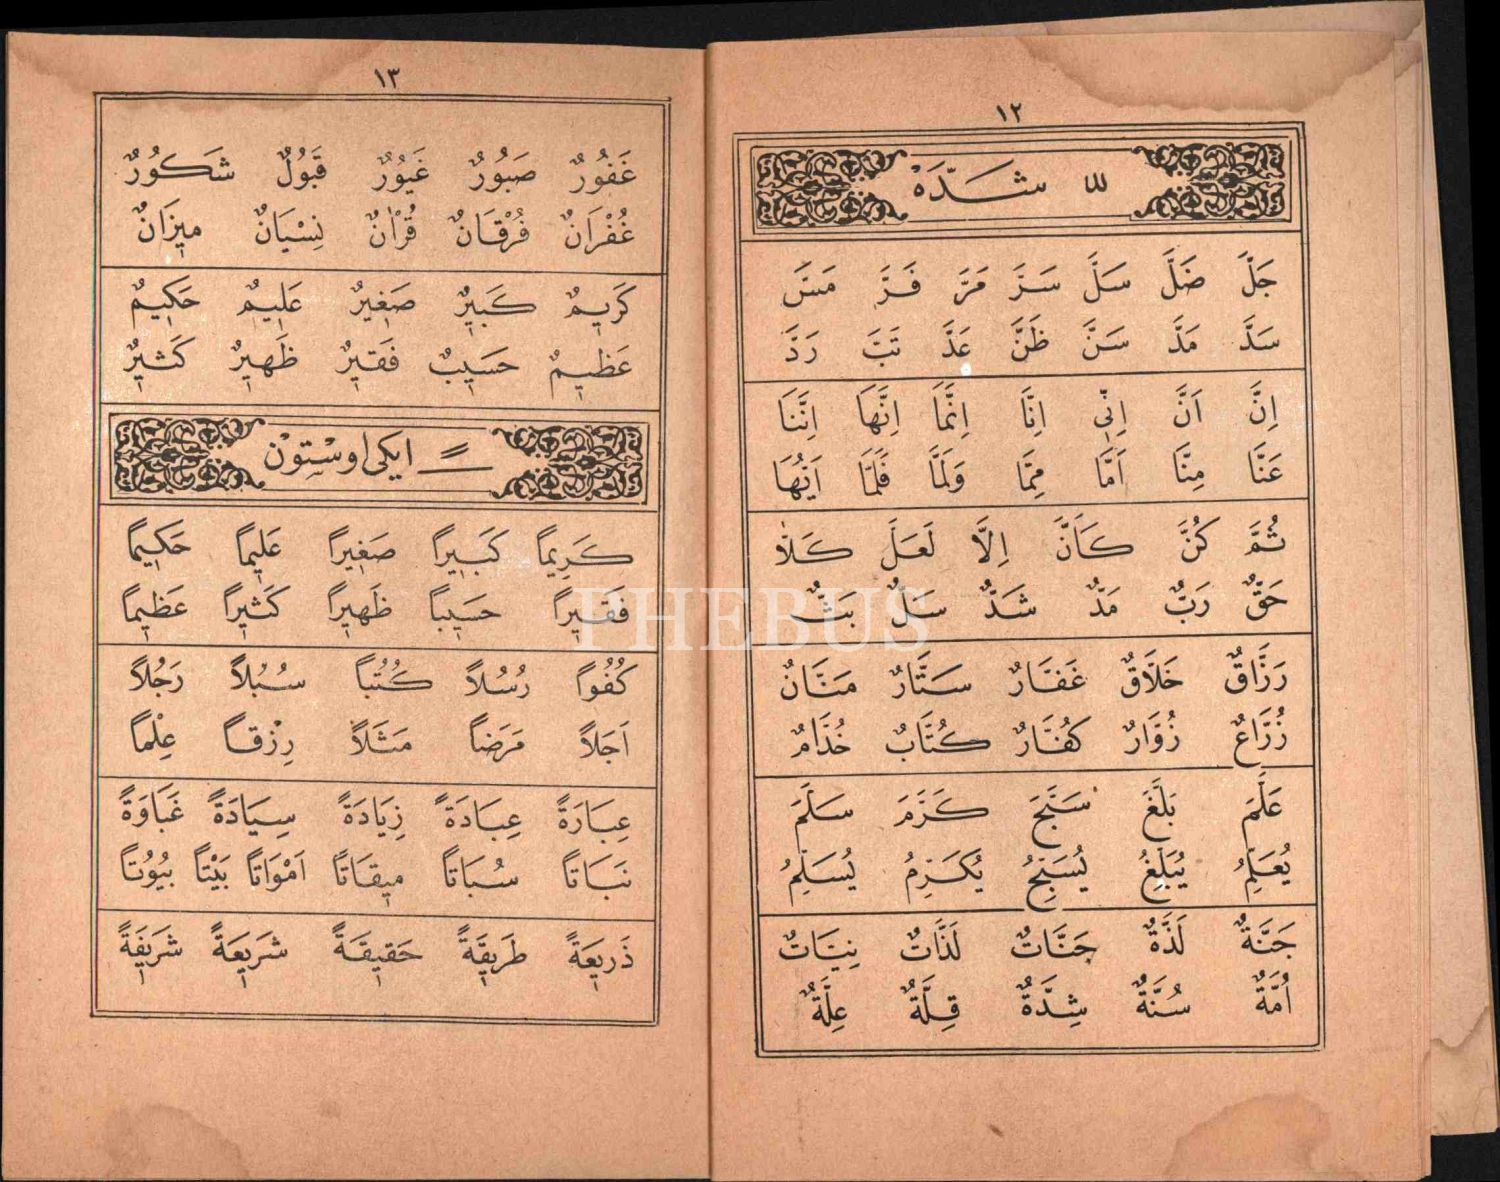 ١٢
ـّـ شَدَّهْ
جَلَّ ضَلَّ سَلَّ سَزَّ مَرَّ فَرَّ مَسَّ
سَدَّ مَدَّ سَنَّ ظَنَّ عَدَّ تَبَّ رَدَّ
اِنَّ اَنَّ اِنّٖى اِنَّا اِنَّمَا اِنَّهَا اِنَّنَا
عَنَّا مِنَّا اَمَّا مِمَّا وَلَمَّا فَلَمَّا اَيُّهَا
ثُمَّ كُنَّ كَاَنَّ اِلَّا لَعَلَّ كَلَّا
حَقٌّ رَبٌّ مَدٌّ شَدٌّ سَلٌّ بَثٌّ
رَزَّاقٌ خَلَّاقٌ غَفَّارٌ سَتَّارٌ مَنَّانٌ
زُرَّاعٌ زُوَّارٌ كُفَّارٌ كُتَّابٌ خُدَّامٌ
عَلَّمَ بَلَّغَ سَبَّحَ كَرَّمَ سَلَّمَ
يُعَلِّمُ يُبَلِّغُ يُسَبِّحُ يُكَرِّمُ يُسَلِّمُ
جَنَّةٌ لَذَّةٌ جَنَّاتٌ لَذَّاتٌ نِيَّاتٌ
اُمَّةٌ سُنَّةٌ شِدَّةٌ قِلَّةٌ عِلَّةٌ
١٣
غَفُورٌ صَبُورٌ غَيُورٌ قَبُولٌ شَكُورٌ
غُفْرَانٌ فُرْقَانٌ قُرْاٰنٌ نِسْيَانٌ مٖيزَانٌ
كَرٖيمٌ كَبٖيرٌ صَغٖيرٌ عَلٖيمٌ حَكٖيمٌ
عَظٖيمٌ حَسٖيبٌ فَقٖيرٌ ظَهٖيرٌ كَثٖيرٌ
ـًـ ايكى اوسْتِونْ
كَرٖيمًا كَبٖيرًا صَغٖيرًا عَلٖيمًا حَكٖيمًا
فَقٖيرًا حَسٖيبًا ظَهٖيرًا كَثٖيرًا عَظٖيمًا
كُفُوًا رُسُلًا كُتُبًا سُبُلًا رَجُلًا
اَجَلًا مَرَضًا مَثَلًا رِزْقًا عِلْمًا
عِبَارَةً عِبَادَةً زِيَادَةً سِيَادَةً غَبَاوَةً
نَبَاتًا سُبَاتًا مٖيقَاتًا اَمْوَاتًا بَيْتًا بُيُوتًا
ذَرٖيعَةً طَرٖيقَةً حَقٖيقَةً شَرٖيعَةً شَرٖيفَةً
PHEBUS